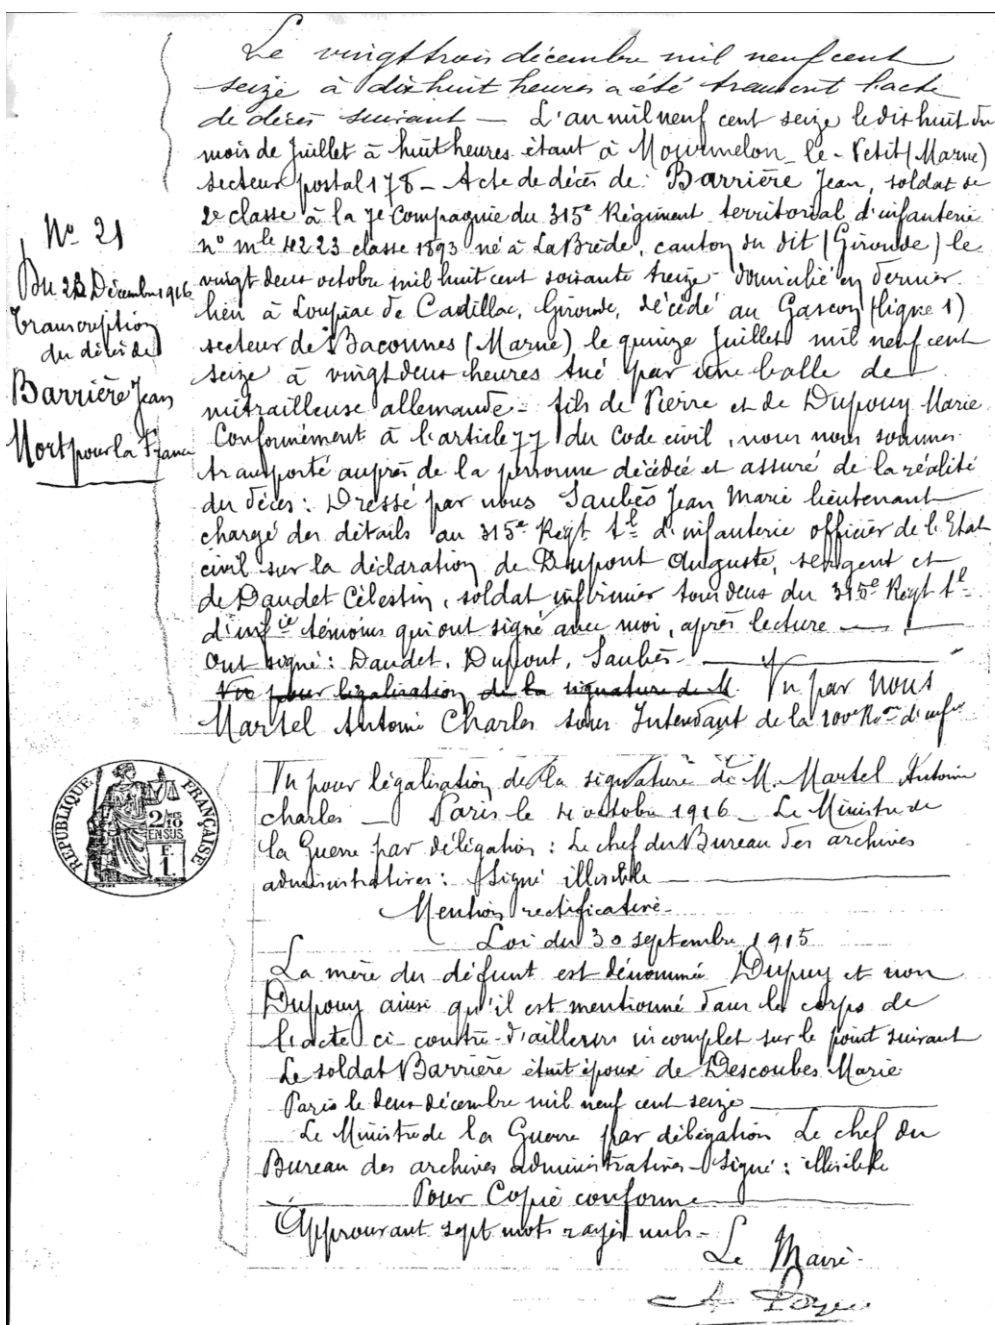 Le vingt trois décembre mil neuf cent
seize à dix huit heures a été transcrit l'acte
de décès suivant — L'an mil neuf cent seize le dix huit du
mois de Juillet à huit heures étant à Mourmelon-le-Petit (Marne)
secteur postal 178 - Acte de décès de : Barrière Jean, soldat de
2e classe à la 7e Compagnie du 315e Régiment territorial d'infanterie
n° mle 4223 classe 1893 né à La Brède, canton du dit (Gironde) le
vingt deux octobre mil huit cent soixante treize - domicilié en dernier
lieu à Loupiac de Cadillac, Gironde, décédé au Gascon (ligne 1)
secteur de Baconnes (Marne) le quinze Juillet mil neuf cent
seize à vingt deux heures tué par une balle de
mitrailleuse allemande - fils de Pierre et de Dupouy Marie
Conformément à l'article 77 du Code civil, nous nous sommes
transporté auprès de la personne décédée et assuré de la réalité
du décès : Dressé par nous Saubès Jean Marie lieutenant
chargé des détails au 315e Régt tal d'infanterie officier de l'Etat
civil sur la déclaration de Dupont Auguste, sergent et
de Daudet Célestin, soldat infirmier tous deux du 315e Régt tal
d'infie témoins qui ont signé avec moi, après lecture —
Ont signé : Daudet, Dupont, Saubès -
Vu pour légalisation de la signature de M. Vu par Nous
Martel Antoine Charles sous Intendant de la 100e d'infie
N° 21
Du 23 Décembre 1916
Transcription
du décès de
Barrière Jean
Mort pour la France
RÉPUBLIQUE FRANÇAISE
2/10
EN SUS
F.
1.
Vu pour légalisation de la signature de M. Martel Antoine
charles — Paris le 4 octobre 1916 - Le Ministre de
la Guerre par délégation : Le chef du Bureau des archives
administratives : Signé illisible
Mention rectificative -
Loi du 30 septembre 1915
La mère du défunt est dénommée Dupuy et non
Dupouy ainsi qu'il est mentionné dans le corps de
l'acte ci-contre - d'ailleurs incomplet sur le point suivant
Le soldat Barrière était époux de Descoubes Marie
Paris le deux décembre mil neuf cent seize
Le Ministre de la Guerre par délégation Le chef du
Bureau des archives administratives - Signé : illisible
Pour Copie conforme
Approuvant sept mots rayés nuls -
Le Maire -